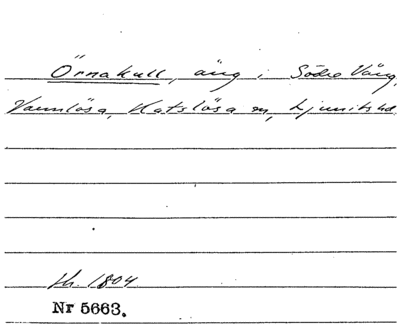 Örnakull, äng i Södra Vång,
Vannlösa, Katslösa sn, Ljunits hd.
Kh. 1804
Nr 5663.